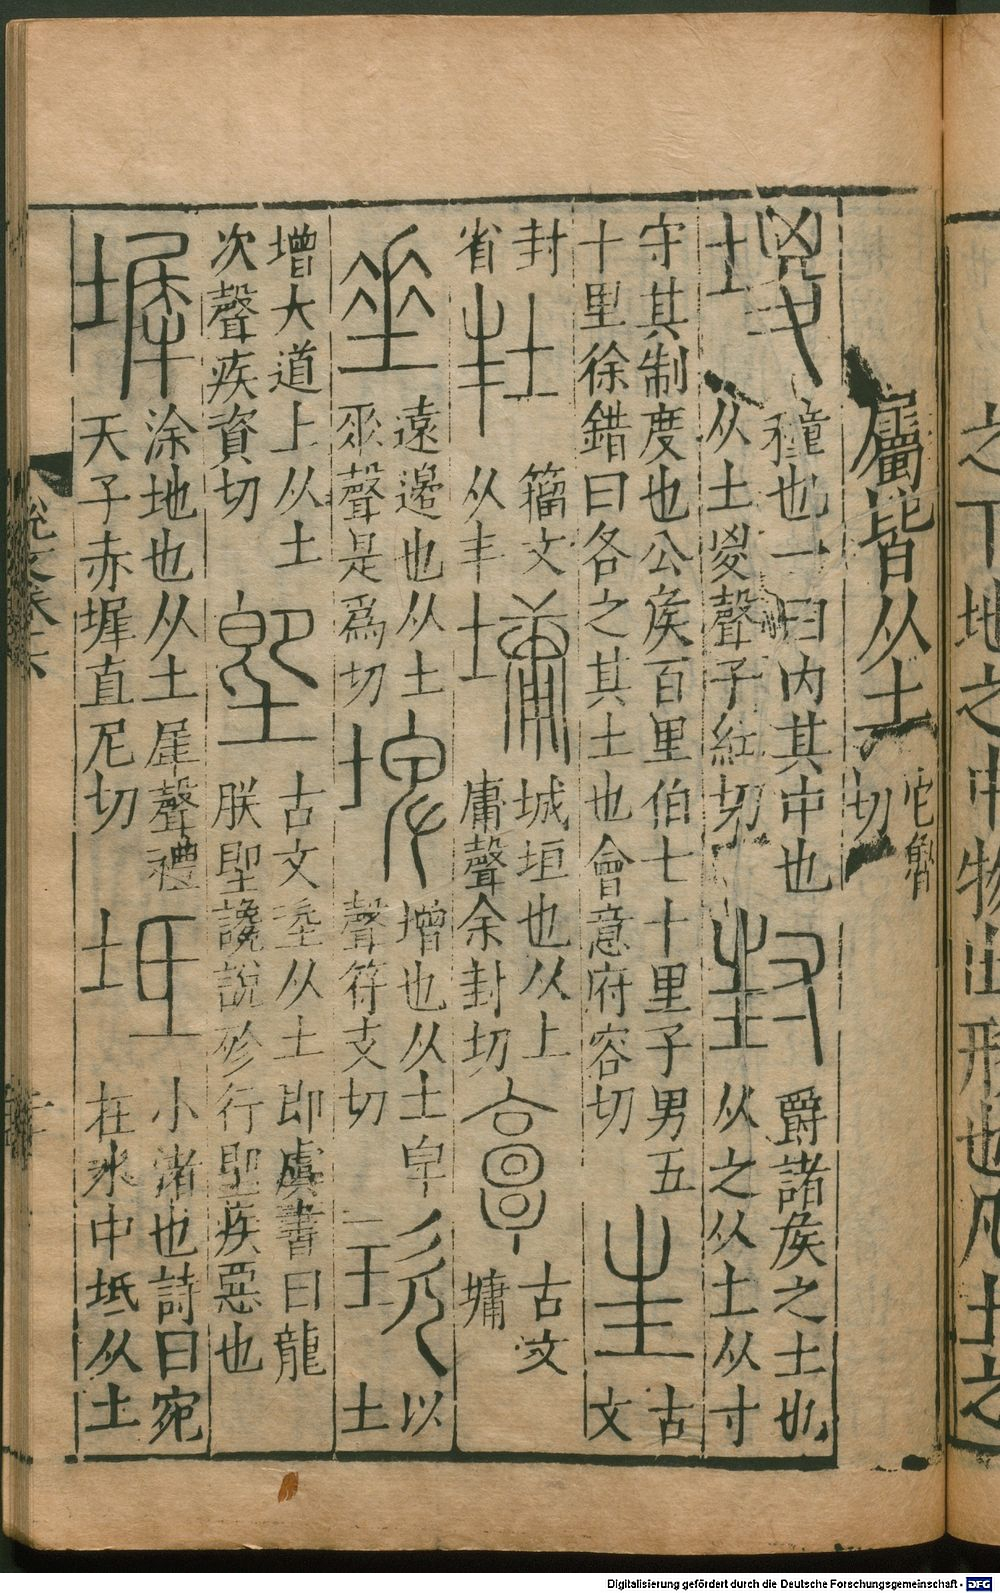 之下地之中物出形也凡土之
屬皆从土
它魯
切
堫
種也一曰内其中也
从土㚇聲子紅切
封
爵諸矦之土也
从之从土从寸
守其制度也公矦百里伯七十里子男五
十里徐錯曰各之其土也會意府容切
𡉚
古
文
封
省
𡊋
籒文
从丰
墉
城垣也从上
庸聲余封切
𩫖
古文
墉
垂
遠邉也从土
𠂹聲是爲切
埤
增也从土卑
聲符支切
垐
以
土
增大道上从土
次聲疾資切
堲
古文垐从土即虞書曰龍
朕堲讒說殄行堲疾惡也
墀
涂地也从土犀聲禮
天子赤墀直尼切
坻
小渚也詩曰宛
在水中坻从土
Digitalisierung gefördert durch die Deutsche Forschungsgemeinschaft - DFG